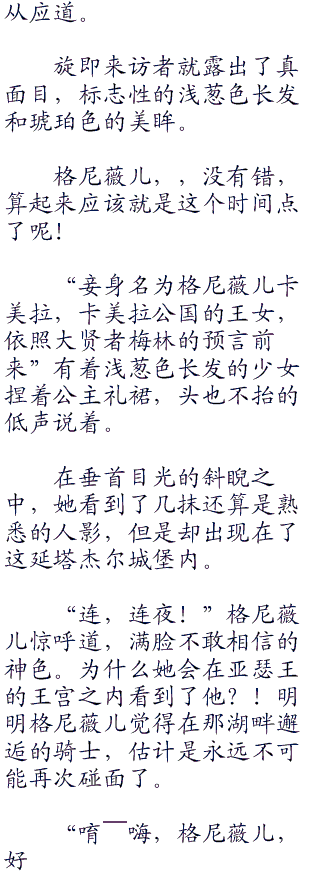 从应道。
旋即来访者就露出了真
面目，标志性的浅葱色长发
和琥珀色的美眸。
格尼薇儿，，没有错，
算起来应该就是这个时间点
了呢！
“妾身名为格尼薇儿卡
美拉，卡美拉公国的王女，
依照大贤者梅林的预言前
来”有着浅葱色长发的少女
捏着公主礼裙，头也不抬的
低声说着。
在垂首目光的斜睨之
中，她看到了几抹还算是熟
悉的人影，但是却出现在了
这延塔杰尔城堡内。
“连，连夜！”格尼薇
儿惊呼道，满脸不敢相信的
神色。为什么她会在亚瑟王
的王宫之内看到了他？！明
明格尼薇儿觉得在那湖畔邂
逅的骑士，估计是永远不可
能再次碰面了。
“唷——嗨，格尼薇儿，
好